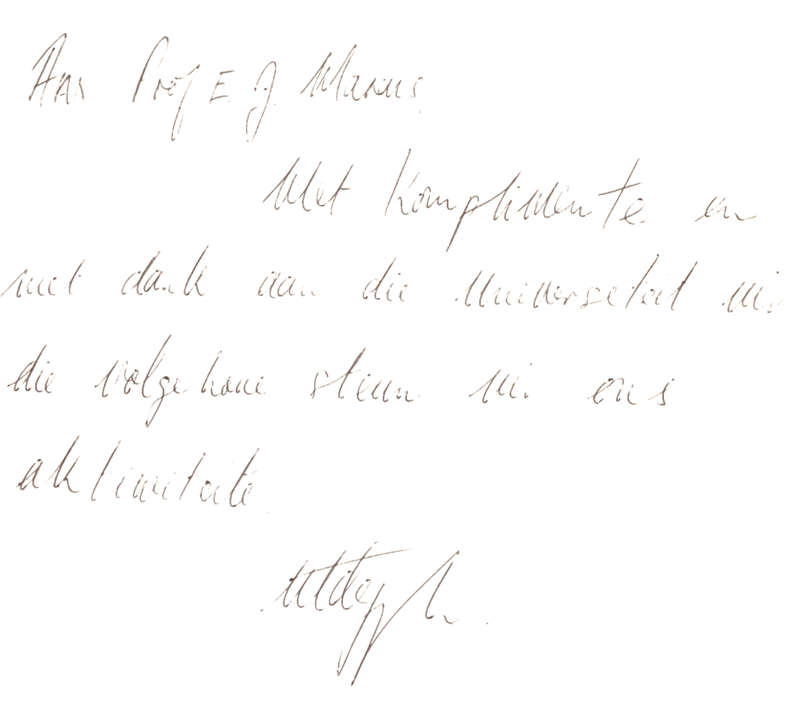 Aan Prof E. J. Marais,
Met Komplimente en
met dank aan die Universiteit vir
die volgehoue steun vir ons
aktiwiteite